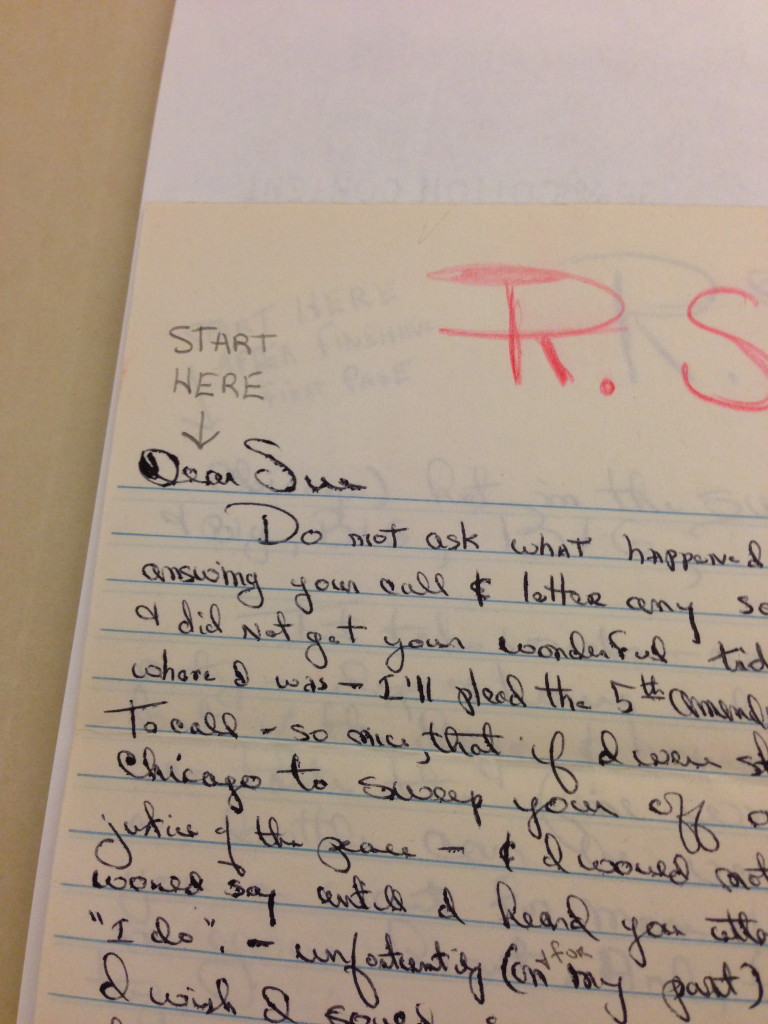 R. S
START
HERE
Dear Sue
Do not ask what happened
answing your call & letter any so
I did Not get your wonderful tid
where I was - I'll plead the 5th amend
To call - so nice, that if I were st
Chicago to sweep your off
justice of the peace - & I wound not
wound say until I heard you utte
"I do". - unfortuntly (on & for my part)
I wish I